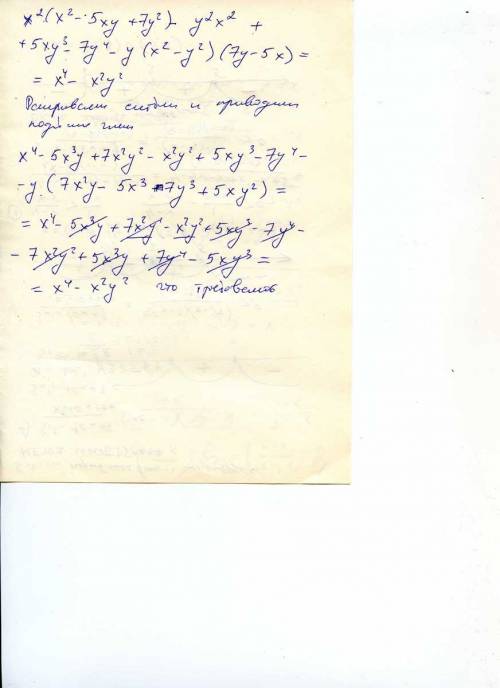 x²(x² - 5xy + 7y²) - y²x² +
+ 5xy³ - 7y⁴ - y (x² - y²) (7y - 5x) =
= x⁴ - x²y²
Раскрываем скобки и приводим
подобные члены
x⁴ - 5x³y + 7x²y² - x²y² + 5xy³ - 7y⁴ -
- y (7x²y - 5x³ - 7y³ + 5xy²) =
= x⁴ - 5x³y + 7x²y² - x²y² + 5xy³ - 7y⁴ -
- 7x²y² + 5x³y + 7y⁴ - 5xy³ =
= x⁴ - x²y² что требовалось